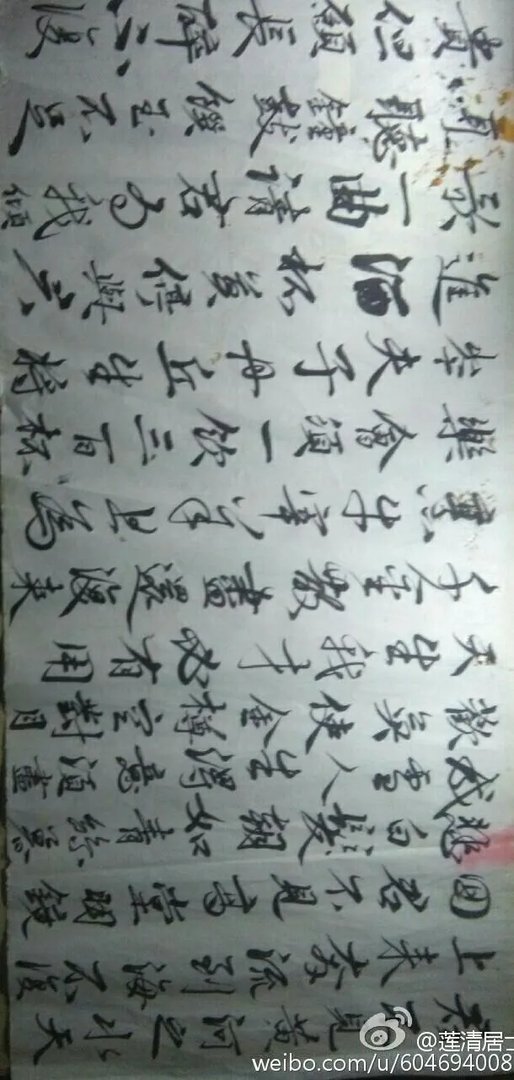 君不見黃河之水天
上来奔流到海不復
回君不見高堂明鏡
悲白髮朝如青絲暮
成雪人生得意須盡
歡莫使金樽空對月
天生我才必有用
千金散盡還復来
烹牛宰羊且為
樂會須一飲三百杯
岑夫子丹丘生將
進酒杯莫停與君
歌一曲請君为我傾
耳聽鐘鼓饌玉不足
貴但願長醉不復
@莲清居士
weibo.com/u/604694008